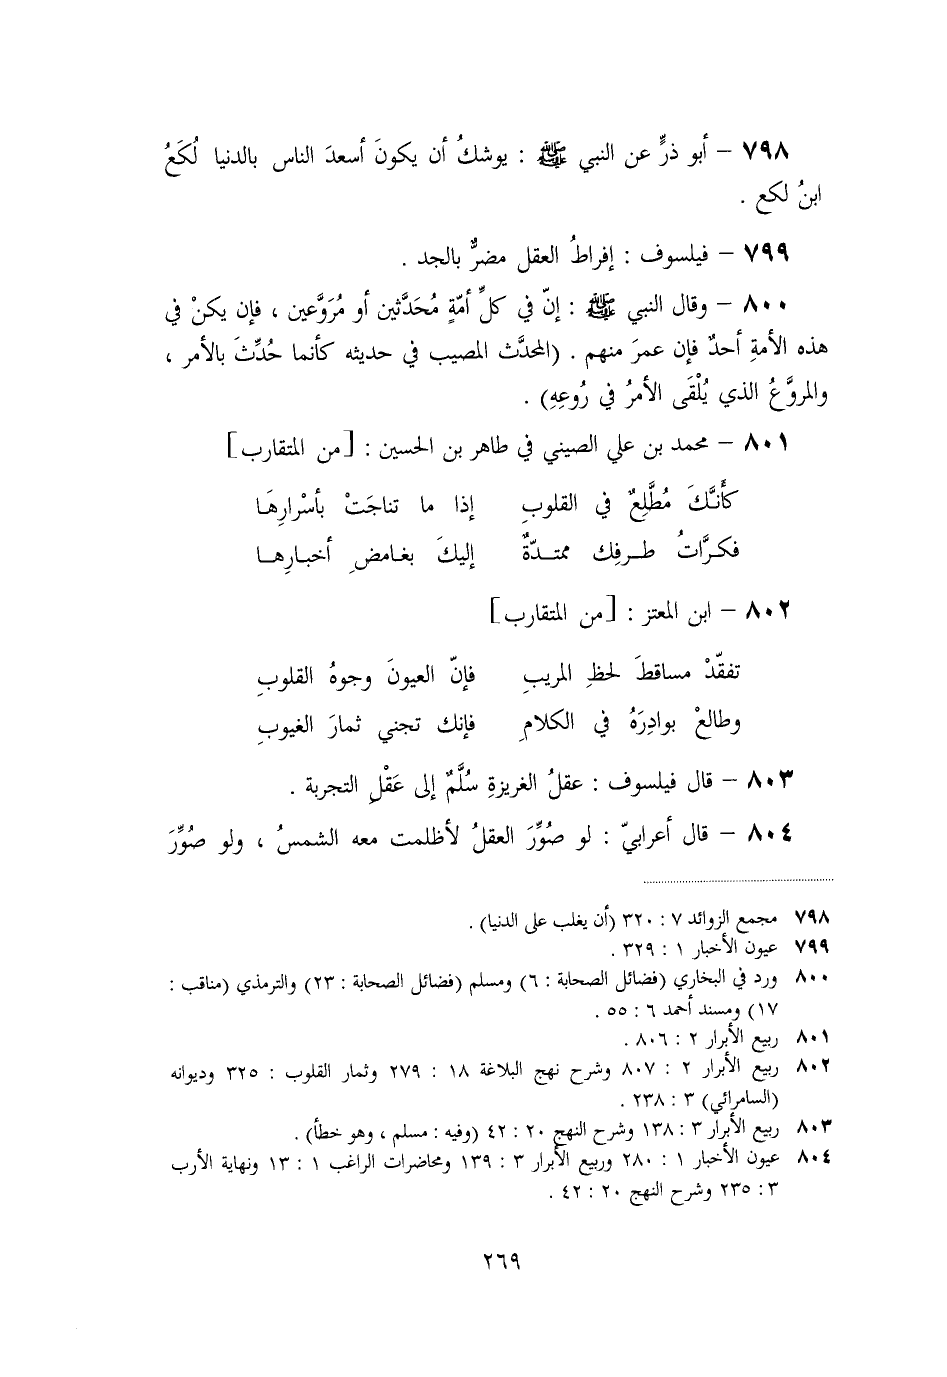 ٧٩٨ – أبو ذرٍّ عن النبي ﷺ : يوشكُ أن يكونَ أسعدَ الناس بالدنيا لُكَعُ
ابنُ لكع .
٧٩٩ – فيلسوف : إفراطُ العقل مضرٌّ بالجد .
٨٠٠ – وقال النبي ﷺ : إنّ في كلِّ أمّةٍ مُحَدَّثين أو مُرَوَّعين ، فإن يكنْ في
هذه الأمةِ أحدٌ فإن عمرَ منهم . (المحدَّث المصيب في حديثه كأنما حُدِّثَ بالأمر ،
والمروَّعُ الذي يُلْقَى الأمرُ في رُوعِهِ) .
٨٠١ – محمد بن علي الصيني في طاهر بن الحسين : [من المتقارب]
كأَنَّكَ مُطَّلِعٌ في القلوبِ إذا ما تناجَتْ بأسْرارِهَا
فكرَّاتُ طرفِك ممتدّةٌ إليكَ بغامضِ أخبارِها
٨٠٢ – ابن المعتز : [من المتقارب]
تفقّدْ مساقطَ لحظِ المريبِ فإنّ العيونَ وجوهُ القلوبِ
وطالعْ بوادِرَهُ في الكلامِ فإنك تجني ثمارَ الغيوبِ
٨٠٣ – قال فيلسوف : عقلُ الغريزةِ سُلَّمٌ إلى عَقْلِ التجربة .
٨٠٤ – قال أعرابيّ : لو صُوِّرَ العقلُ لأظلمت معه الشمسُ ، ولو صُوِّرَ
٧٩٨ مجمع الزوائد ٧ : ٣٢٠ (أن يغلب على الدنيا) .
٧٩٩ عيون الأخبار ١ : ٣٢٩ .
٨٠٠ ورد في البخاري (فضائل الصحابة : ٦) ومسلم (فضائل الصحابة : ٢٣) والترمذي (مناقب :
١٧) ومسند أحمد ٦ : ٥٥ .
٨٠١ ربيع الأبرار ٢ : ٨٠٦ .
٨٠٢ ربيع الأبرار ٢ : ٨٠٧ وشرح نهج البلاغة ١٨ : ٢٧٩ وثمار القلوب : ٣٢٥ وديوانه
(السامرائي) ٣ : ٢٣٨ .
٨٠٣ ربيع الأبرار ٣ : ١٣٨ وشرح النهج ٢٠ : ٤٢ (وفيه : مسلم ، وهو خطأ) .
٨٠٤ عيون الأخبار ١ : ٢٨٠ وربيع الأبرار ٣ : ١٣٩ ومحاضرات الراغب ١ : ١٣ ونهاية الأرب
٣ : ٢٣٥ وشرح النهج ٢٠ : ٤٢ .
٢٦٩